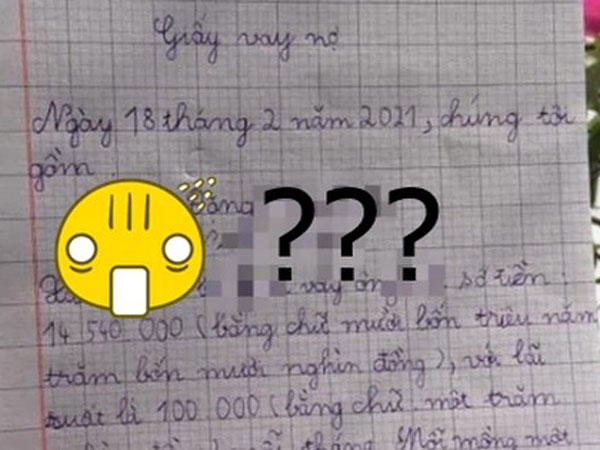 Giấy vay nợ
Ngày 18 tháng 2 năm 2021, chúng tôi
gồm
Đặng
???
vay ông số tiền:
14 540 000 (bằng chữ mười bốn triệu năm
trăm bốn mươi nghìn đồng), với lãi
suất là 100 000 (bằng chữ một trăm
tháng. Mỗi mồng một